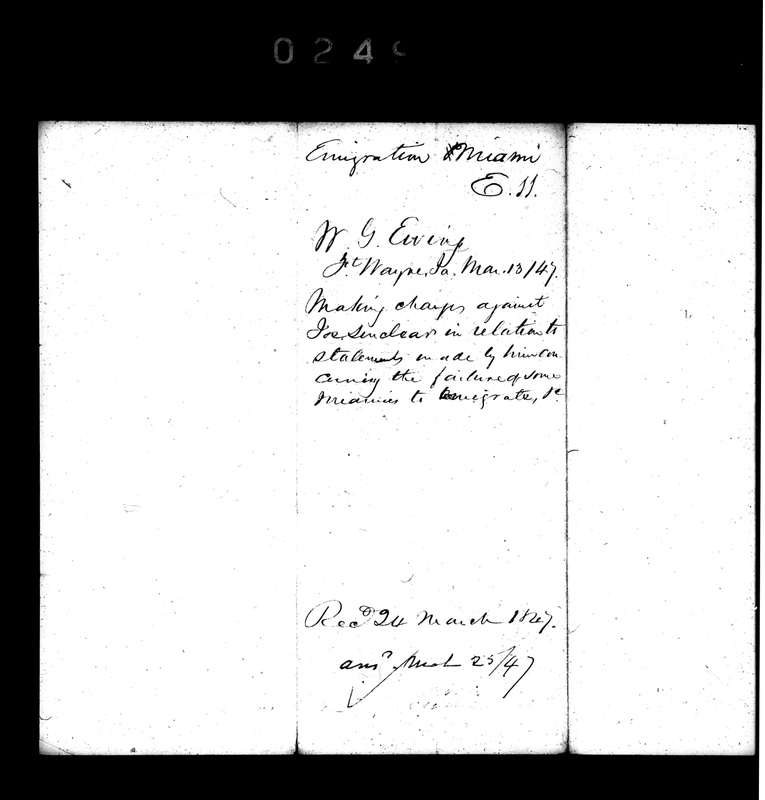 0249
Emigration & Miami
E. 11.
W. G. Ewing
Ft Wayne, Ia. Mar. 13/47.
Making charges against
Jos. Sinclear in relation to
statements made by him con
cerning the failure of some
Miamies to emigrate, &c
Recd 24 March 1847.
ansd Mch 25/47